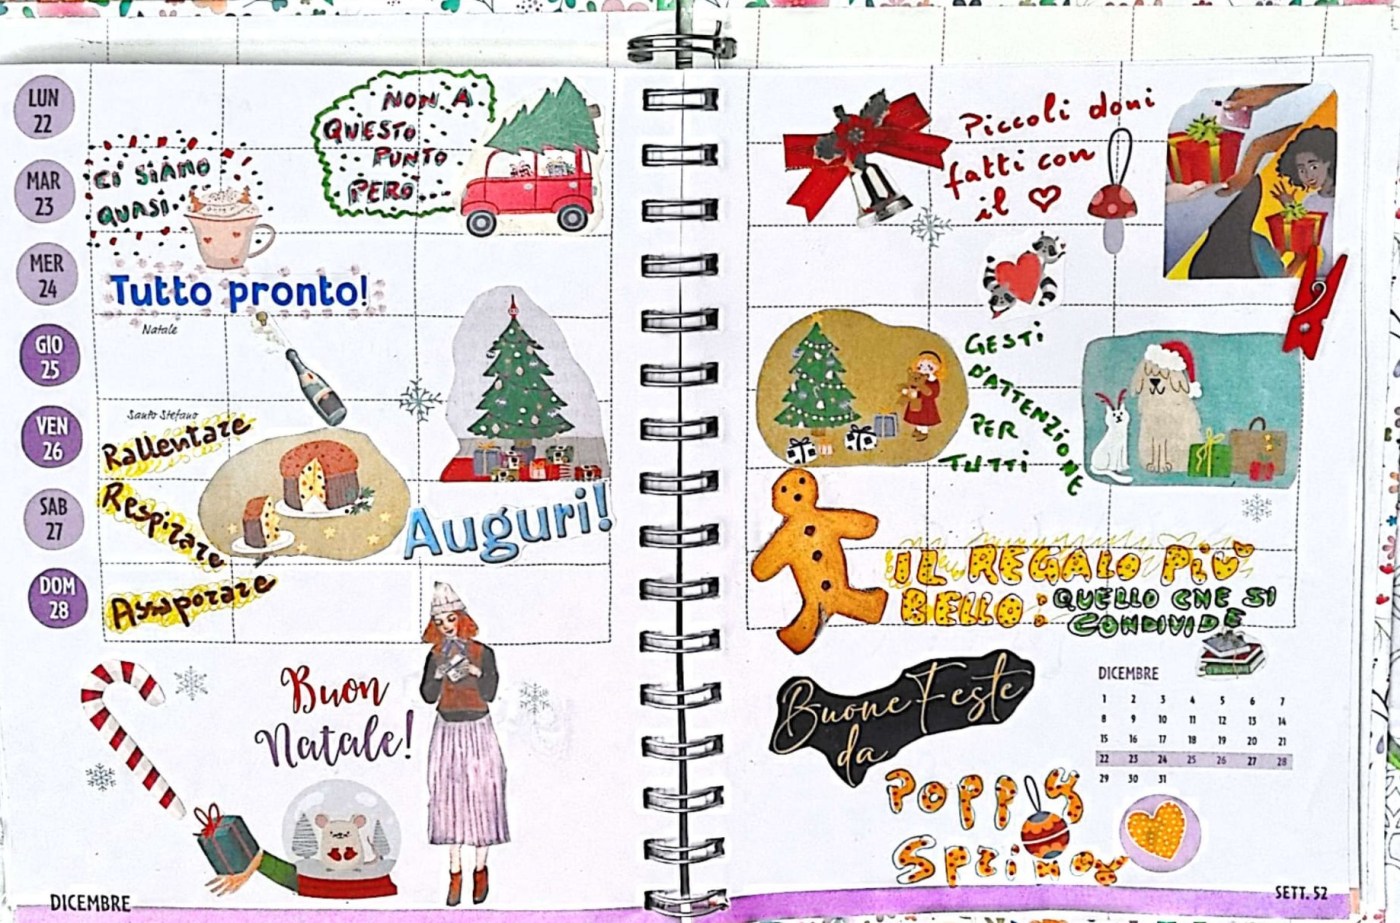 LUN
22
MAR
23
MER
24
GIO
25
VEN
26
SAB
27
DOM
28
CI SIAMO
QUASI...
NON A
QUESTO
PUNTO
PERÒ...
Tutto pronto!
Natale
Santo Stefano
Rallentare
Respirare
Assaporare
Auguri!
Buon
Natale!
DICEMBRE
Piccoli doni
fatti con
il ♡
GESTI
D'ATTENZIONE
PER
TUTTI
IL REGALO PIÙ
BELLO: QUELLO CHE SI
CONDIVIDE
Buone Feste
da
POPPY
Spring
DICEMBRE
1 2 3 4 5 6 7
8 9 10 11 12 13 14
15 16 17 18 19 20 21
22 23 24 25 26 27 28
29 30 31
SETT. 52